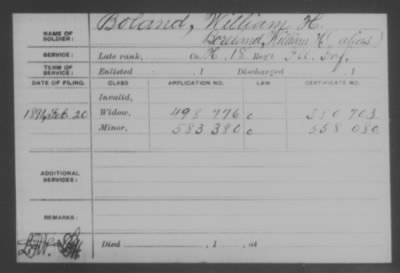 NAME OF SOLDIER: Boland, William H.
Borland, William H. (alias)
SERVICE: Late rank, Co. H, 18 Reg't Ill. Inf.
TERM OF SERVICE: Enlisted , 1 Discharged , 1
DATE OF FILING. CLASS. APPLICATION NO. LAW. CERTIFICATE NO.
Invalid,
1891, Feb. 20 Widow, 498 776 c
Minor, 583 380 c 558 080
ADDITIONAL SERVICES:
REMARKS:
Died , 1 , at